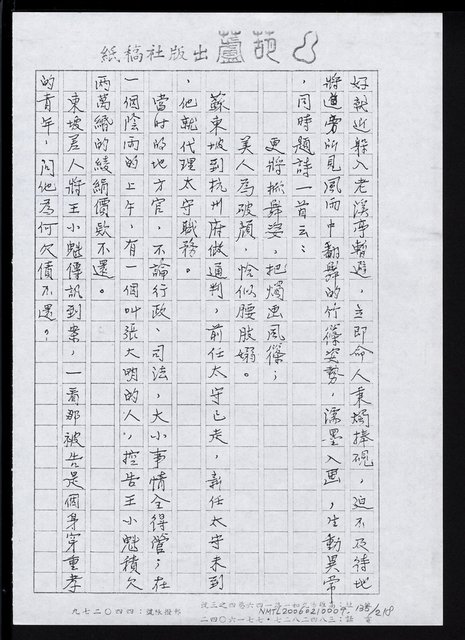 紙稿社版出蘆葩
好就近躲入老溪亭暫避，立即命人秉燭捧硯，迫不及待地
將道旁所見風雨中翻舞的竹篠姿勢，濡墨入畫，生動異常
，同時題詩一首云：
更將掀舞姿，把燭畫風篠；
美人為破顏，恰似腰肢嫋。
蘇東坡到杭州府做通判，前任太守已走，新任太守未到
，他就代理太守職務。
當時的地方官，不論行政、司法，大小事情全得管；在
一個陰雨的上午，有一個叫張大明的人，控告王小魁積欠
兩萬緡的綾絹價款不還。
東坡差人將王小魁傳訊到案，一看那被告是個身穿重孝
的青年，問他為何欠債不還？
NMTL20060210009 138/218
九七二〇四四：號帳撥郵